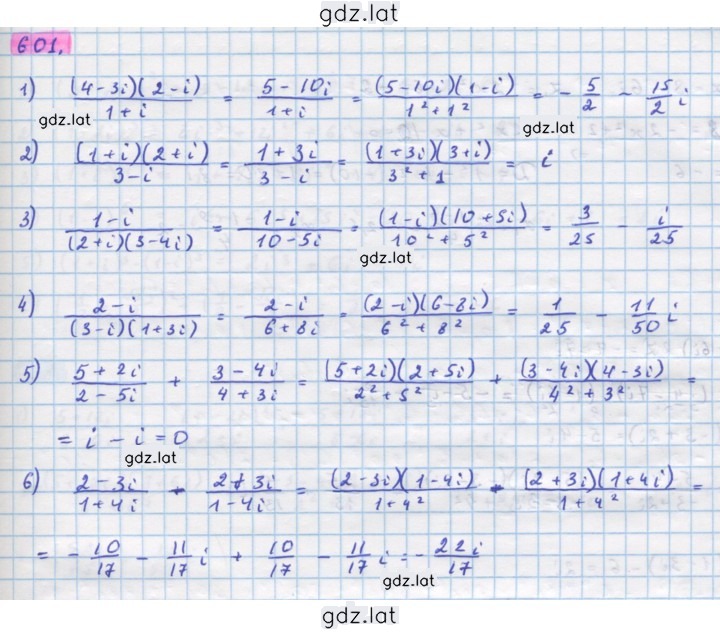 gdz.lat
601.
1) (4-3i)(2-i)/(1+i) = (5-10i)/(1+i) = (5-10i)(1-i)/(1²+1²) = -5/2 - 15/2 i
gdz.lat
2) (1+i)(2+i)/(3-i) = (1+3i)/(3-i) = (1+3i)(3+i)/(3²+1) = i
3) (1-i)/((2+i)(3-4i)) = (1-i)/(10-5i) = (1-i)(10+5i)/(10²+5²) = 3/25 - i/25
gdz.lat
4) (2-i)/((3-i)(1+3i)) = (2-i)/(6+8i) = (2-i)(6-8i)/(6²+8²) = 1/25 - 11/50 i
5) (5+2i)/(2-5i) + (3-4i)/(4+3i) = (5+2i)(2+5i)/(2²+5²) + (3-4i)(4-3i)/(4²+3²) =
= i - i = 0
gdz.lat
6) (2-3i)/(1+4i) - (2+3i)/(1-4i) = (2-3i)(1-4i)/(1+4²) - (2+3i)(1+4i)/(1+4²) =
= -10/17 - 11/17 i + 10/17 - 11/17 i = -22i/17
gdz.lat
gdz.lat